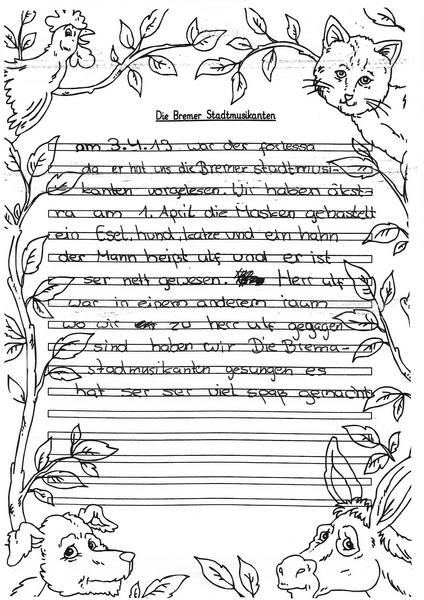 Die Bremer Stadtmusikanten
am 3.4.13 war der forlessa
da er hat uns die Bremer stadtmusi-
kanten vorgelesen. Wir haben äkst-
ra am 1. April die Masken gebastelt
ein Esel, hund, katze und ein hahn
der Mann heißt ulf und er ist
ser nett gewesen. Herr ulf
war in einem anderem raum
wo wir zu herr ulf gegagen
sind haben wir Die Brema-
stadmusikanten gesungen es
hat ser ser viel spaß gemacht